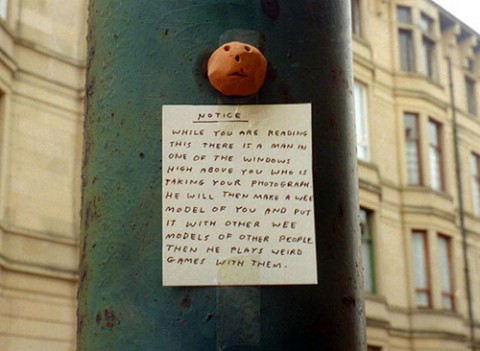 NOTICE
WHILE YOU ARE READING
THIS THERE IS A MAN IN
ONE OF THE WINDOWS
HIGH ABOVE YOU WHO IS
TAKING YOUR PHOTOGRAPH.
HE WILL THEN MAKE A WEE
MODEL OF YOU AND PUT
IT WITH OTHER WEE
MODELS OF OTHER PEOPLE
THEN HE PLAYS WEIRD
GAMES WITH THEM.